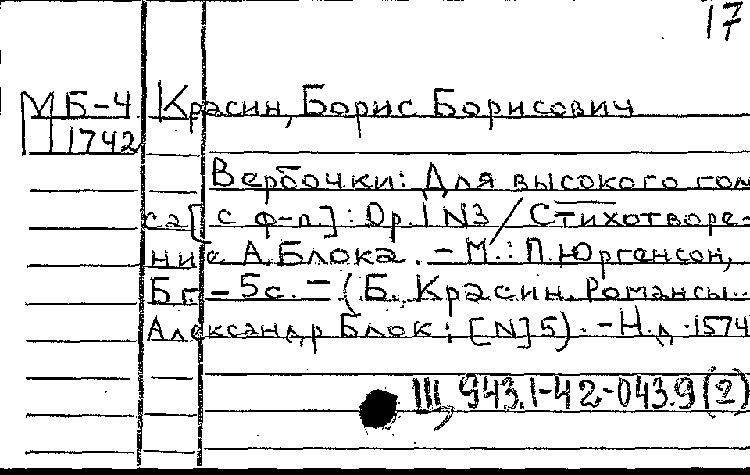 17
МБ-4 Красин, Борис Борисович
1742
Вербочки: Для высокого голо
са [с ф-п]: Op. 1 N3 / Стихотворе-
ние А. Блока. - М.: П. Юргенсон,
Бг - 5с. - (Б. Красин. Романсы..
Александр Блок; [N] 5). - Н.д. 1574
III, 943.1-42-043.9 (2)